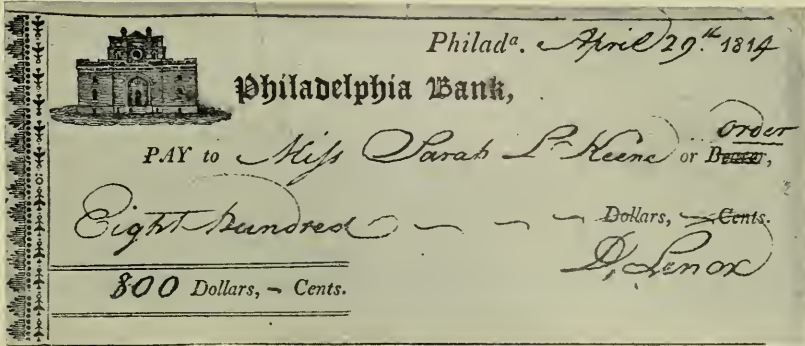 Philadᵃ. April 29.ᵗʰ 1814
Philadelphia Bank,
order
PAY to Miss Sarah L. Keene or Bearer,
Eight hundred — — — — Dollars, — Cents.
D, Lenox
800 Dollars, — Cents.